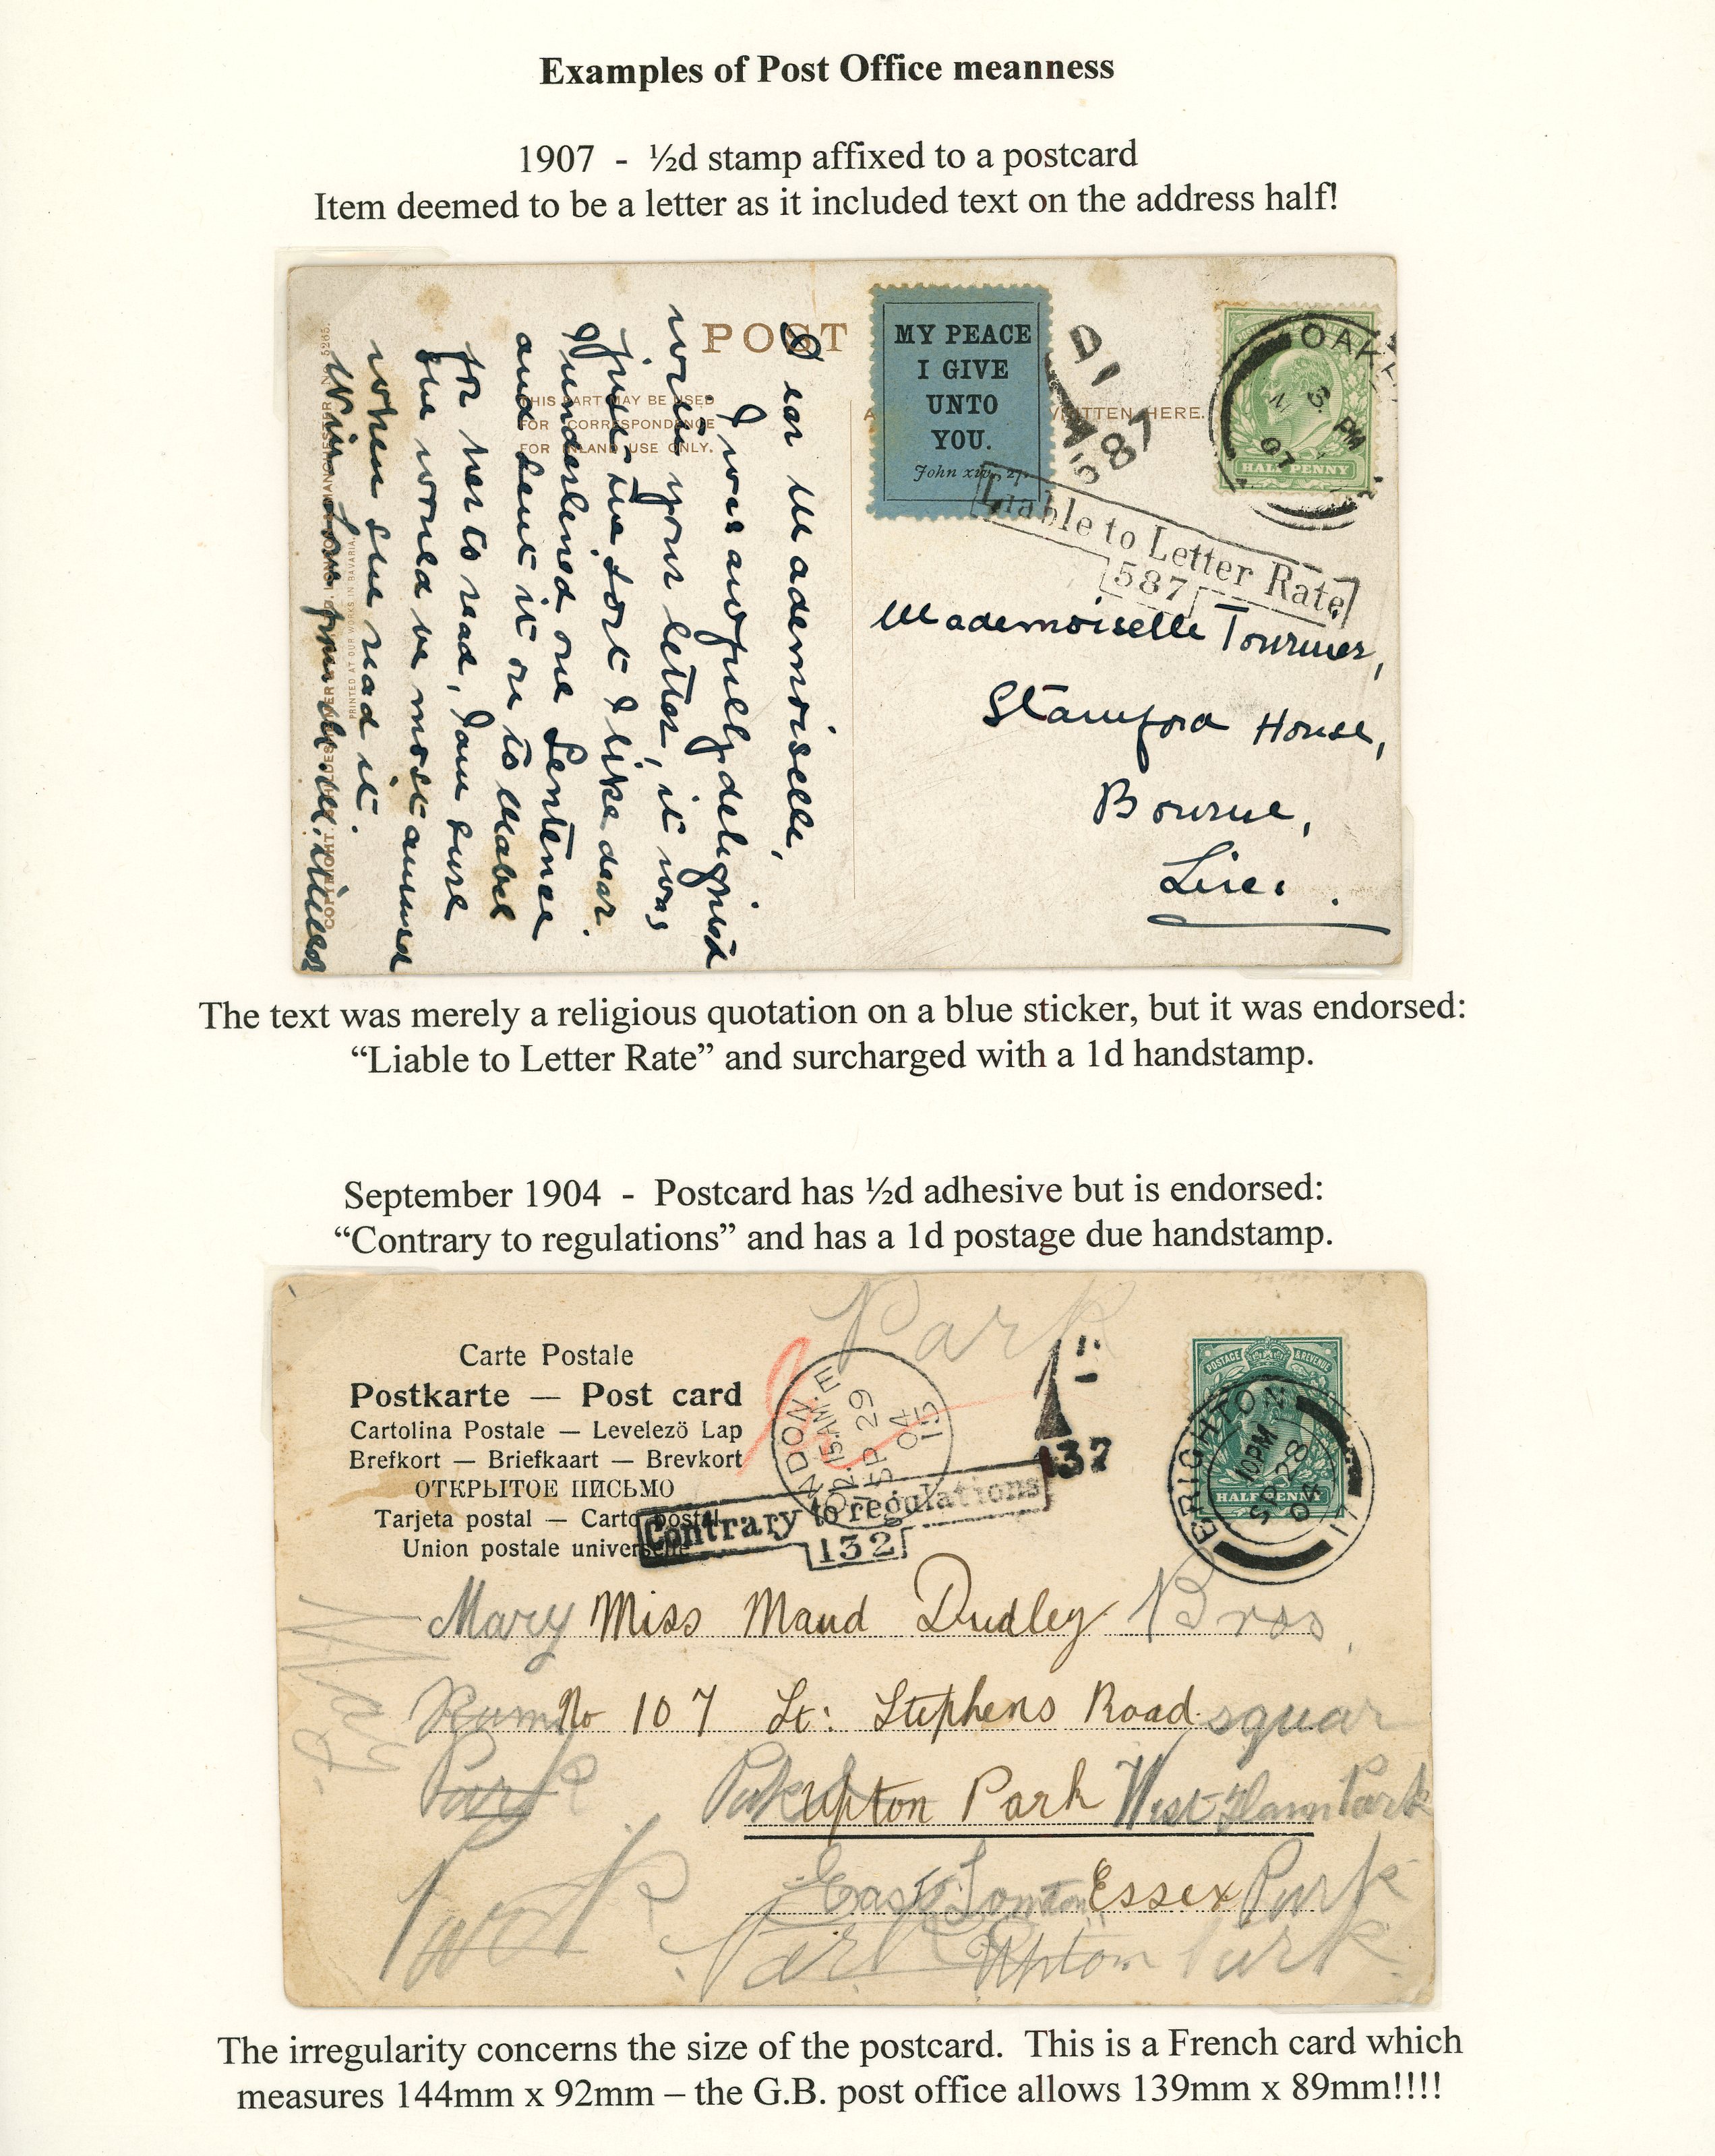 Examples of Post Office meanness
1907 - ½d stamp affixed to a postcard
Item deemed to be a letter as it included text on the address half!
POST
THIS PART MAY BE USED
FOR CORRESPONDENCE
FOR INLAND USE ONLY.
WRITTEN HERE.
MY PEACE
I GIVE
UNTO
YOU.
John xiv. 27.
D1
587
OAK
PM
07
HALF PENNY
Liable to Letter Rate
587
Dear Mademoiselle,
I was awfully delighted
with your letter, it was
just the sort I like dear.
I underlined one sentence
and sent it on to Mabel
for her to read, I am sure
she would be most amused
when she read it.
With Love from
PRINTED AT OUR WORKS IN BAVARIA.
Mademoiselle Tournier,
Stamford House,
Bourne,
Linc.
The text was merely a religious quotation on a blue sticker, but it was endorsed:
“Liable to Letter Rate” and surcharged with a 1d handstamp.
September 1904 - Postcard has ½d adhesive but is endorsed:
“Contrary to regulations” and has a 1d postage due handstamp.
Park
Carte Postale
Postkarte — Post card
Cartolina Postale — Levelezö Lap
Brefkort — Briefkaart — Brevkort
ОТКРЫТОЕ ПИСЬМО
Tarjeta postal — Carto postal
Union postale universelle
NDON. E
12.15.AM
SP 29
04
15
1D
137
Contrary to regulations
132
POSTAGE & REVENUE
HALF PENNY
BRIGHTON
10PM
SP 28
04
Mary Miss Maud Dudley Bros
No 107 St: Stephens Road squar
Park Upton Park West Ham Park
East Essex Park
Park Upton Park
The irregularity concerns the size of the postcard. This is a French card which
measures 144mm x 92mm – the G.B. post office allows 139mm x 89mm!!!!